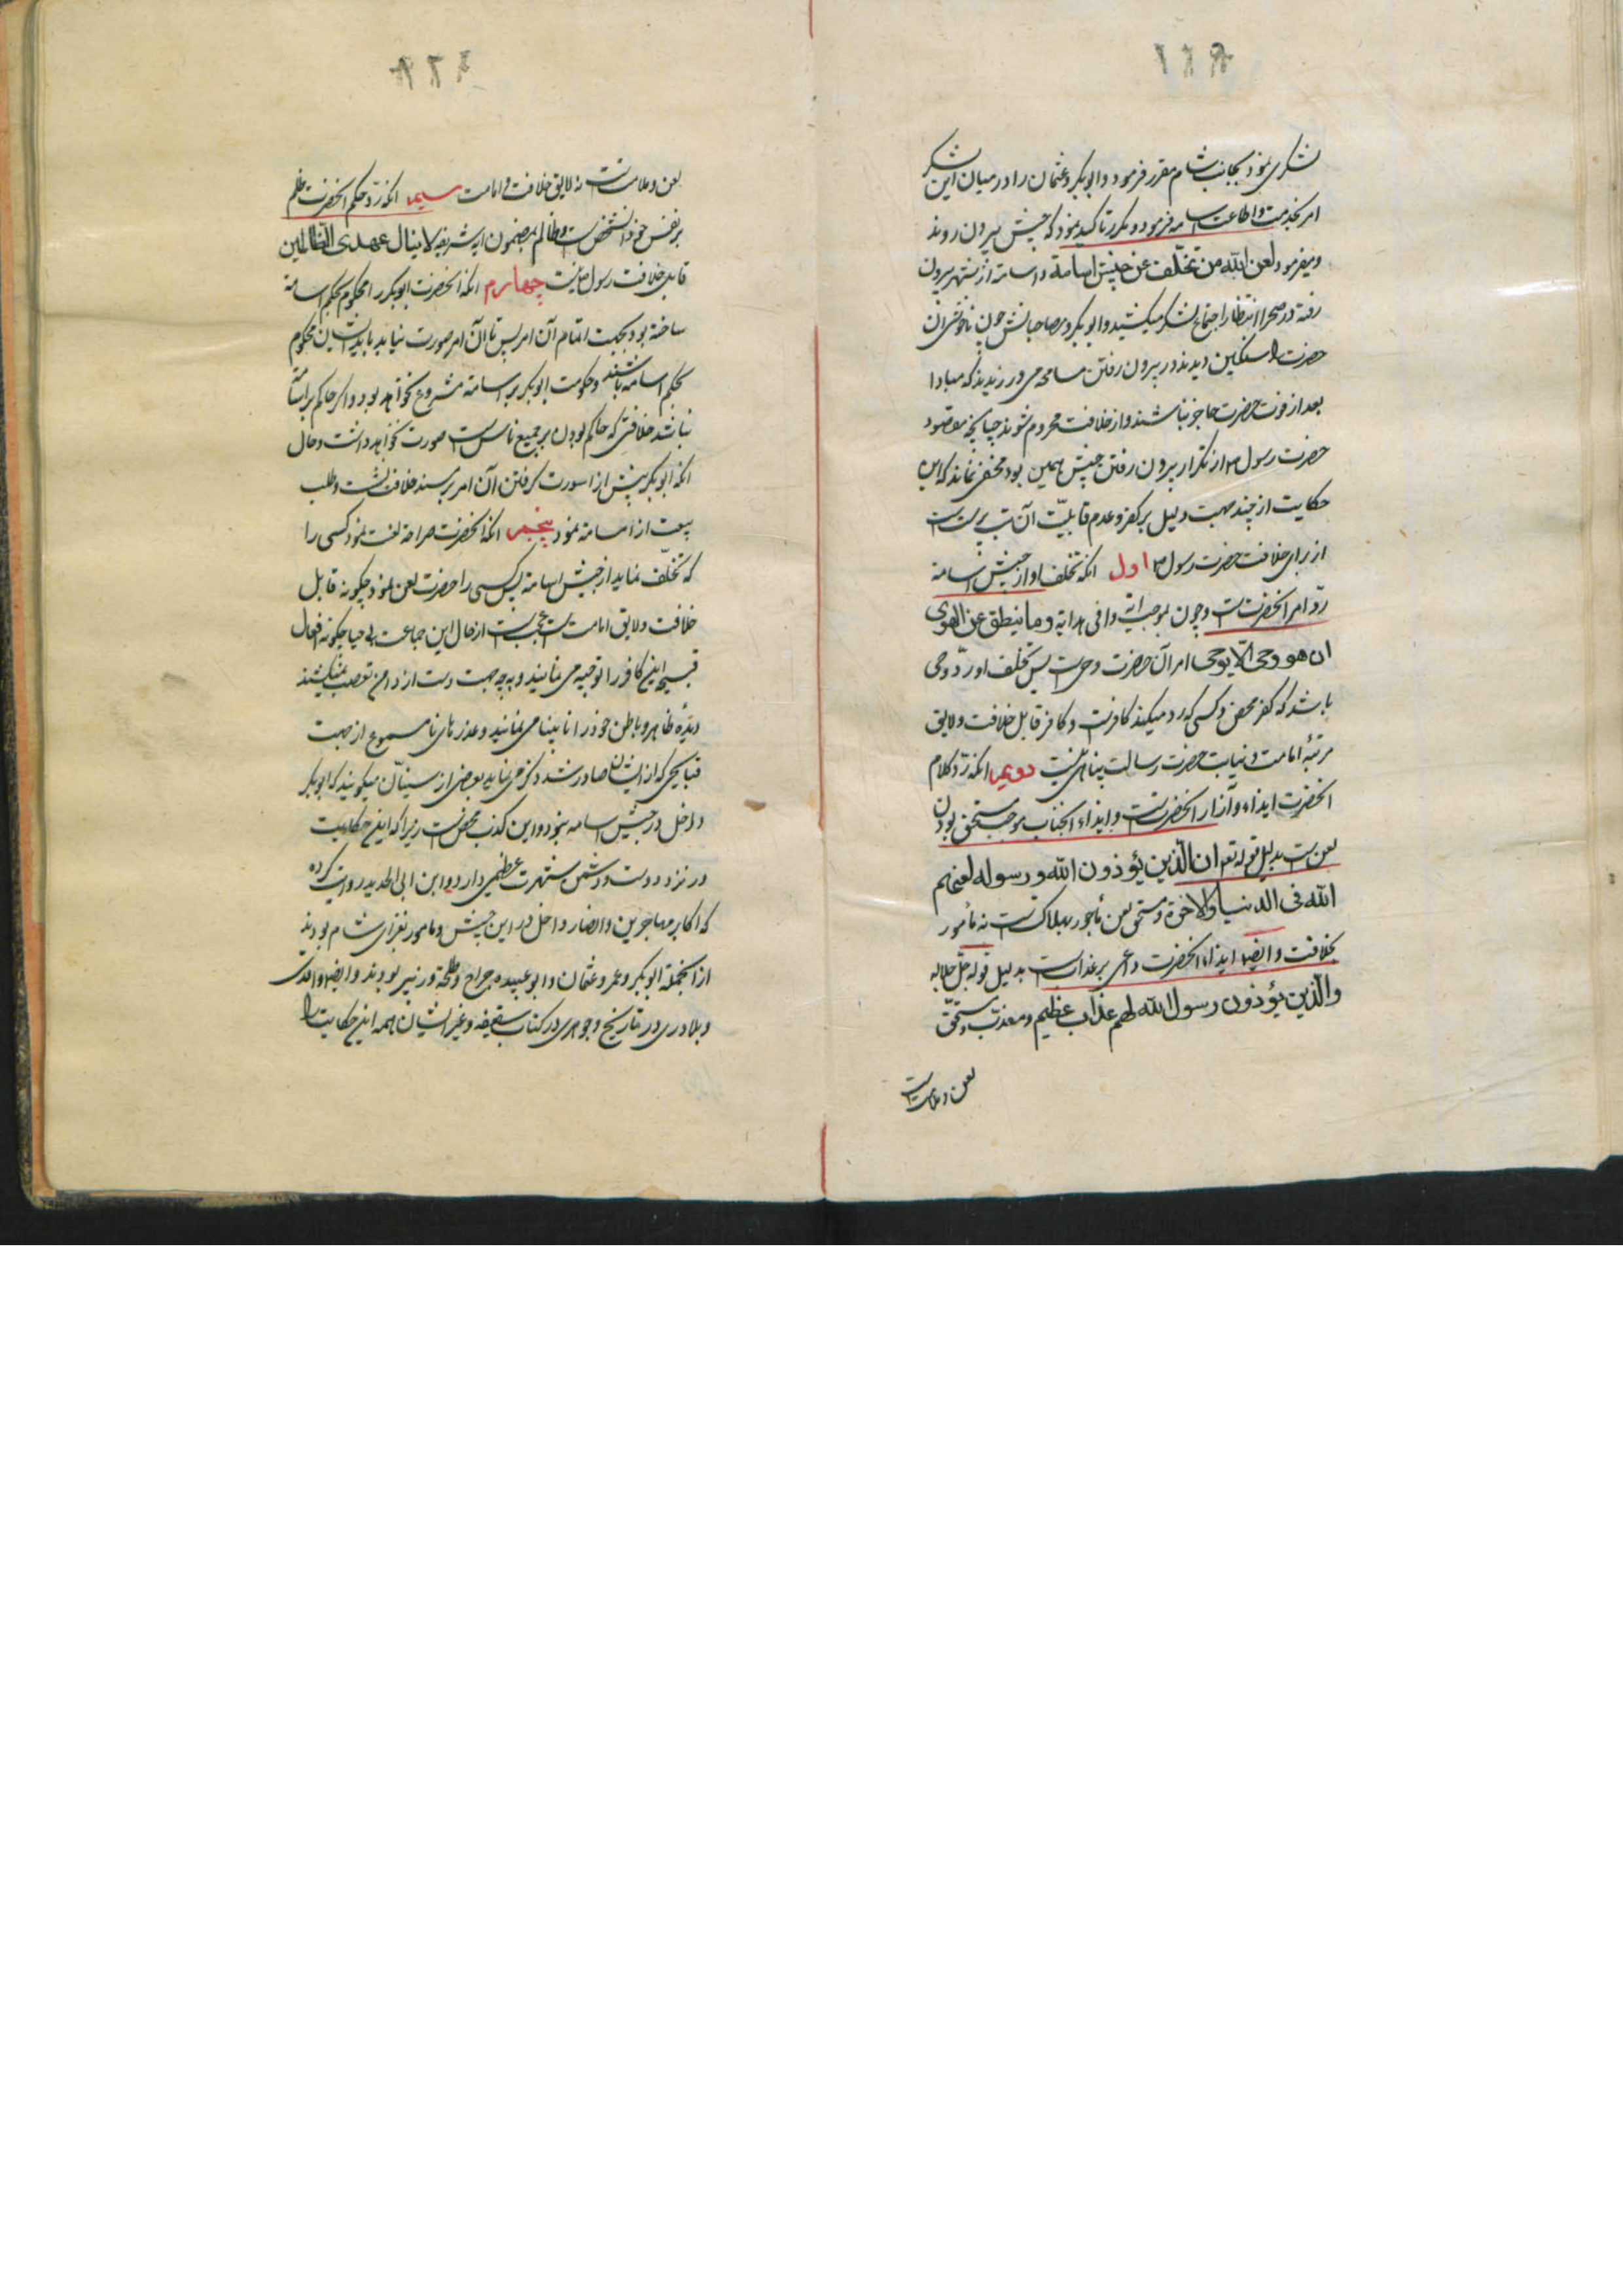 لشکری نمود بجانب شام مقرر فرمود و ابوبکر و عثمان را در میان این لشکر
امر بخدمت و اطاعت اسامه فرمود و مکرر تاکید نمود که جیش بیرون روند
و میفرمود لعن الله من تخلّف عن جیش اسامة و اسامة از شهر بیرون
رفته در صحرا انتظار اجتماع لشکر میکشید و ابوبکر و مصاحبانش چون ناخوشی آن
حضرت را سنکین دیدند در بیرون رفتن مسامحه می ورزیدند که مبادا
بعد از فوت حضرت حاضر نباشند و از خلافت محروم شوند چنانچه مقصود
حضرت رسول ص از تکرار بیرون رفتن جیش همین بود مخفی نماند که این
حکایت از چند جهت دلیل بر کفر و عدم قابلیّت آن بت پرست است
از برای خلافت حضرت رسول ص اول انکه تخلف او از جیش اسامة
ردّ امر انحضرتست و چون بموجب ایهٔ وافی هدایه و ما ینطق عن الهوی
ان هو وحی الّا یوحی امر آن حضرت وحی است پس تخلّف او ردّ وحی
باشد که کفر محض و کسی که رد میکند کافرست و کافر قابل خلافت و لایق
مرتبهٔ امامت و نیابت حضرت رسالت پناهی نیست دویم انکه ردّ کلام
انحضرت ایذاء و آزار انحضرتست و ایذاء انجناب موجب مستحق بودن
لعن است بدلیل قوله تع ان الّذین یؤذون الله و رسوله لعنهم
الله فی الدنیا والاخرة و مستحق لعن ماجور بهلاکست نه مأمور
بخلافت و ایضا ایذاء انحضرت داعی بر عذاب است بدلیل قوله جلّ جلاله
والّذین یؤذون رسول الله لهم عذاب عظیم و معذب و مستحقّ
لعن و ملامت
لعن و ملامتست نه لایق خلافت و امامت سیم انکه ردّ حکم انحضرت ظلم
بر نفس خود انشخص است و ظالم بمضمون ایهٔ شریفه لا ینال عهدی الظالمین
قابل خلافت رسول ص نیست چهارم انکه انحضرت ابوبکر را محکوم بحکم اسامة
ساخته بود بجهت اتمام آن امر پس تا آن امر صورت نیابد باید ایشان محکوم
بحکم اسامة باشند و حکومت ابوبکر بر اسامة مشروع نخواهد بود و اکر حاکم بر اسامة
نباشد خلافتی که حاکم بودن بر جمیع ناس است صورت نخواهد داشت و حال
انکه ابوبکر پیش از صورت کرفتن آن امر بر مسند خلافت نشست و طلب
بیعت از اسامة نمود پنجم انکه انحضرت صراحة لعنت نمود کسی را
که تخلّف نماید از جیش اسامة پس کسی را حضرت لعن نمود چکونه قابل
خلافت و لایق امامت است عجب است از حال این جماعت بی حیا چکونه افعال
قبیحه این کافر را توجیه می نمایند و به چه جهت دست از دامن تعصب نمیکشند
دیدهٔ ظاهر و باطن خود را نابینا می نمایند و عذرهای نامسموع از جهت
قبایحی که از ایشان صادر شد ذکر می نماید بعضی از سنیان میکویند که ابوبکر
داخل در جیش اسامه نبود و این کذب محض است زیرا که این حکایت
در نزد دوست و دشمن شهرت عظیمی دارد و ابن ابی الحدید روایت کرده
که اکابر مهاجرین و انصار داخل در این جیش و مامور بغزای شام بودند
از انجمله ابوبکر و عمر و عثمان و ابو عبیده جراح و طلحة و زبیر بودند و ایضا واقدی
و بلادری در تاریخ و جوهری در کتاب سقیفه و غیر ایشان همه این حکایت را